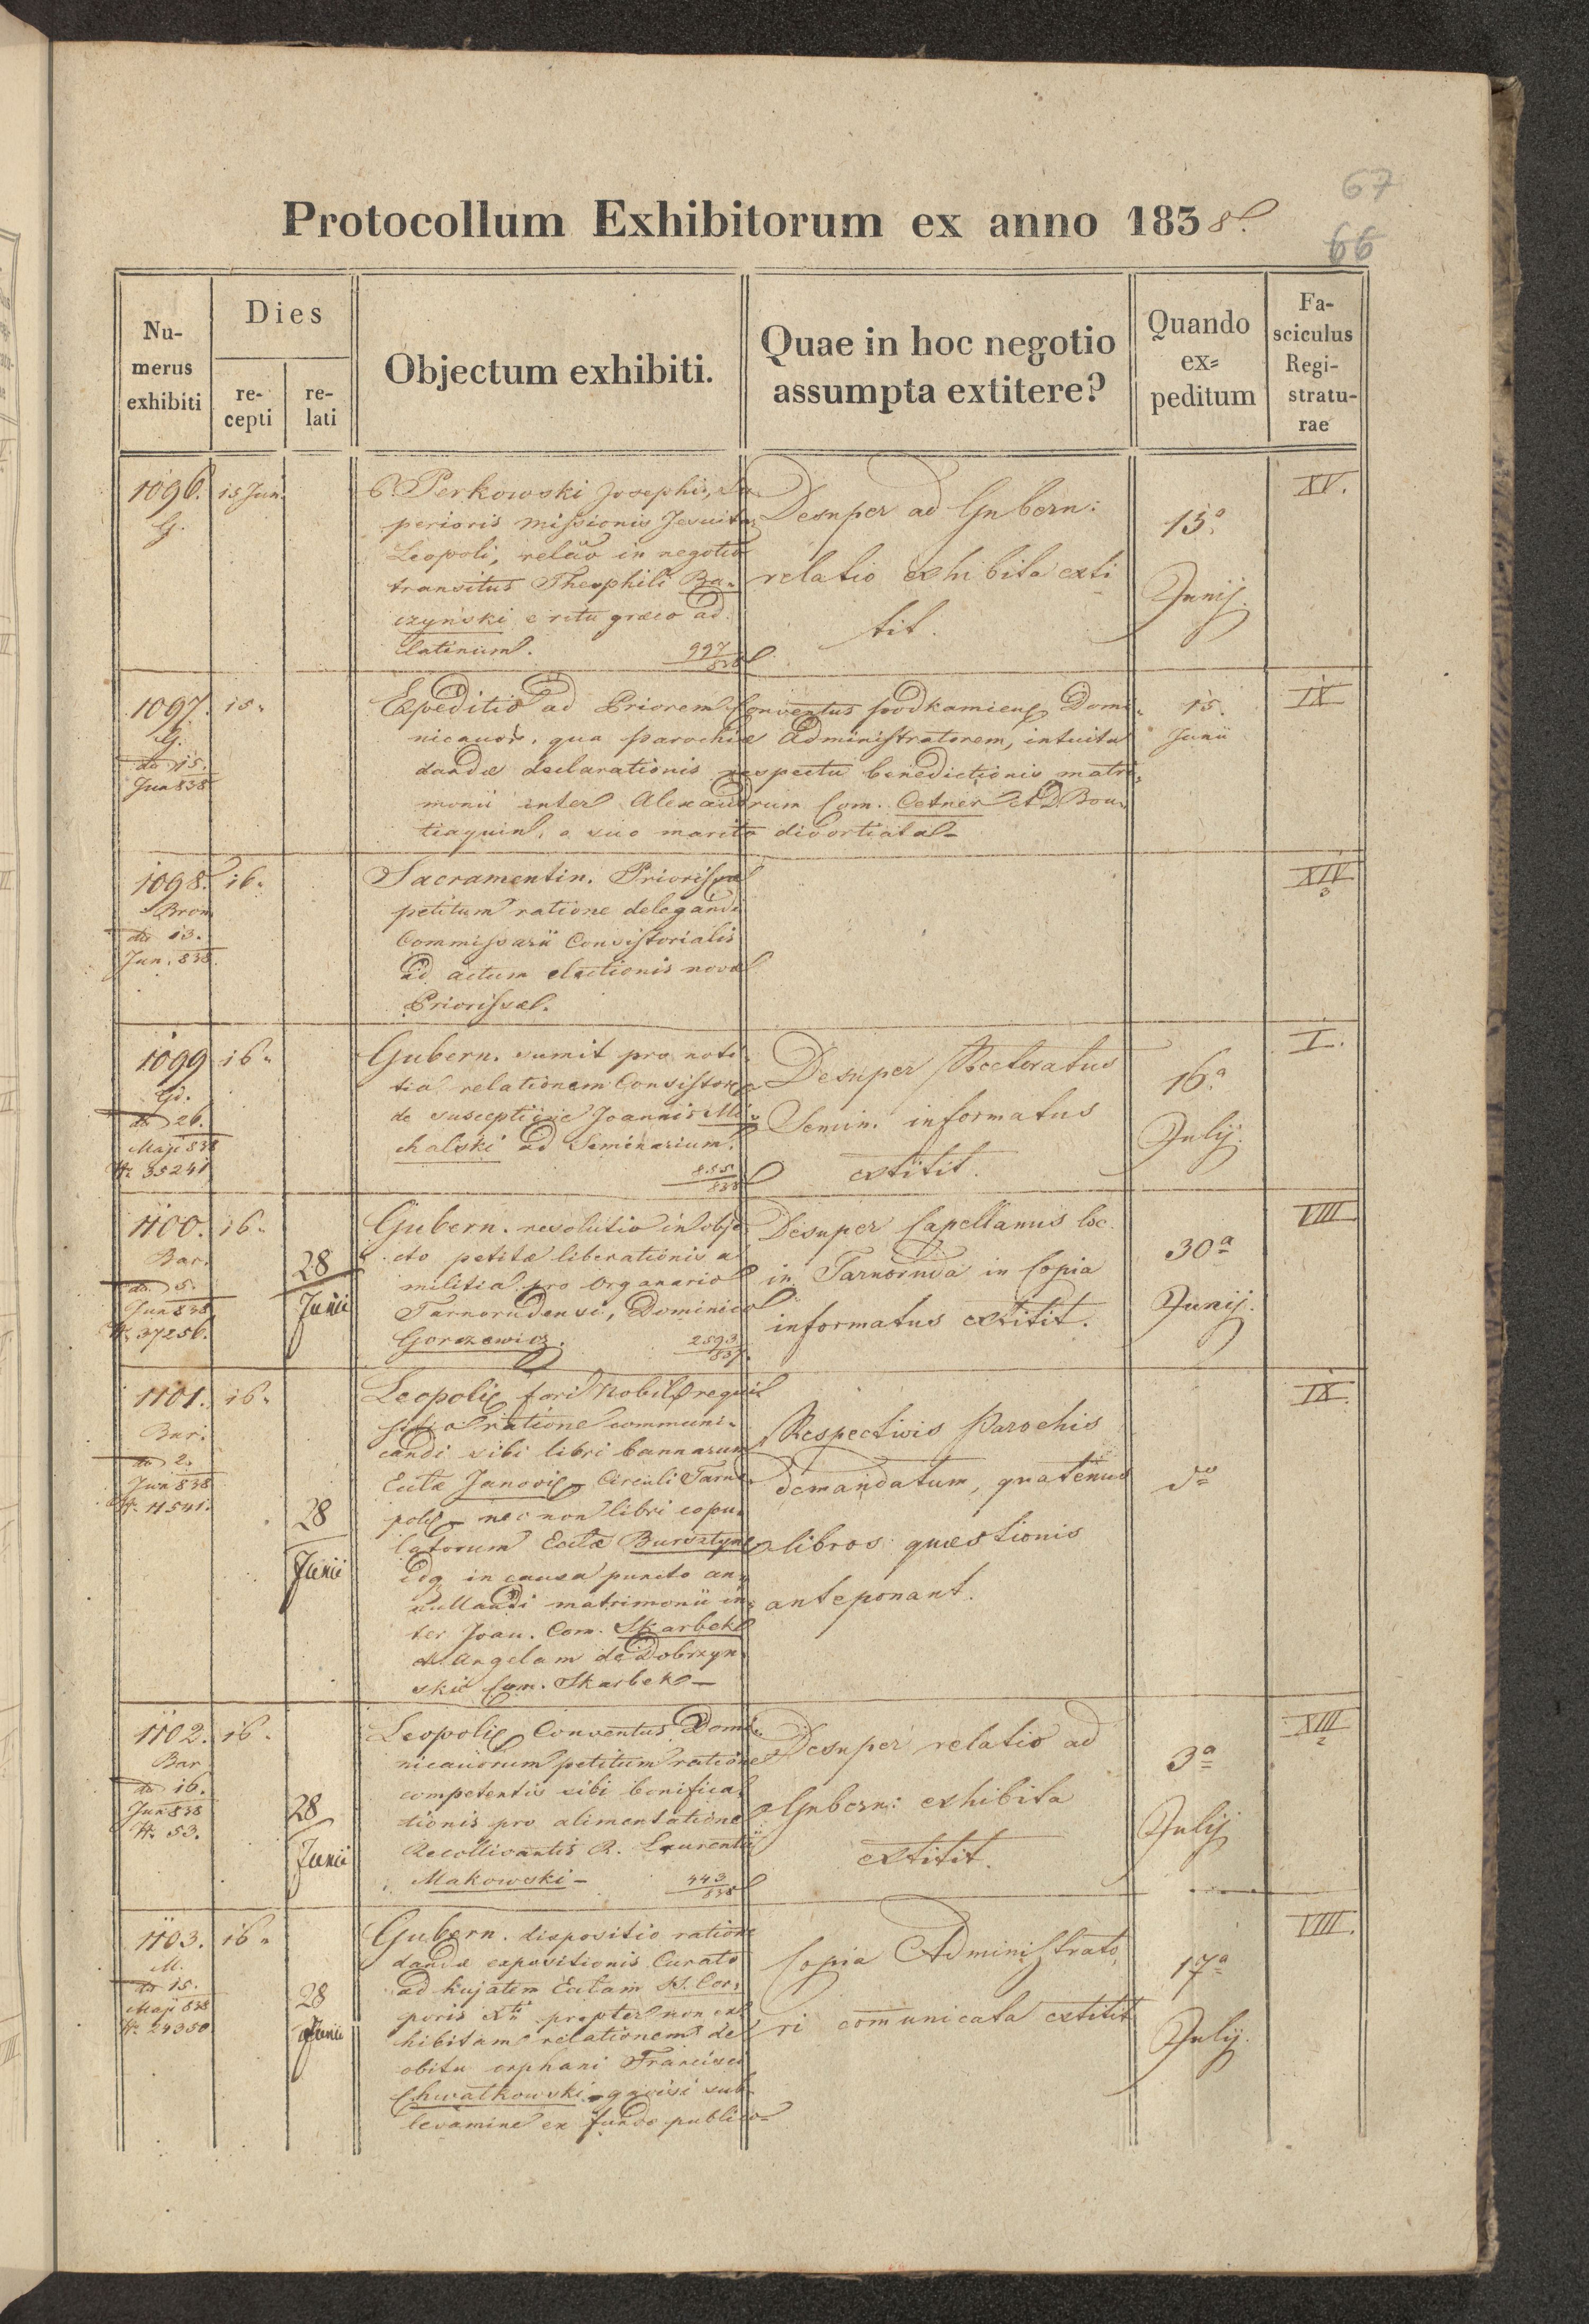 67
66
Protocollum Exhibitorum ex anno 1838
Nu-
merus
exhibiti
Dies
re-
cepti
re-
lati
Objectum exhibiti.
Quae in hoc negotio
assumpta extitere?
Quando
ex=
peditum
Fa-
sciculus
Regi-
stratu-
rae
1096.
G.
15 Jun.
Perkowski Josephi, Su-
perioris missionis Jesuit.
Leopoli, relāo in negotio
transitus Theophili Ba-
czyński e ritu græco ad
latinum.
997
838
Desuper ad Gubern:
relatio exhibita exti
tit.
15ª
Junij.
XV.
1097.
G.
do 15.
Jun 838
15.
Expeditio ad Priorem Conventus podkamien. Domi-
nicanor. qua parochiæ Administratorem, intuitu
dandæ declarationis respectu benedictionis matri-
monii inter Alexandrum Com. Cetner et D Bou-
tiaguin, a suo marito divortiata
15.
Junii
IX
1098.
Bron
do 13.
Jun. 838.
16.
Sacramentin. Priorissæ
petitum ratione delegandi
Commissarii Consistorialis
ad actum electionis novæ
Priorissæ.
XIV
3
1099
Gd.
do 26.
Maji 838
N. 35241
16.
Gubern. sumit pro noti-
tia relationem Consistor.
de susceptione Joannis Mi-
chalski ad Seminarium.
855
838
Desuper Rectoratus
Semin. informatus
extitit.
16ª
Julij.
I.
1100.
Bar.
do 5.
Jun 838
N. 37256.
16.
28
Junii
Gubern. resolutio in obje-
cto petitæ liberationis a
militia pro Organario
Tarnorudensi, Dominico
Gorczewicz.
2593
837.
Desuper Capellanus loc.
in Tarnoruda in Copia
informatus extitit.
30ª
Junij.
VIII
1101.
Bar.
do 2.
Jun 838
N. 11541.
16.
28
Junii
Leopoli fori Nobil requi
sitio ratione communi-
candi sibi libri bannorum
Ecclæ Janovi Circuli Tarno-
pol nec non libri copu-
latorum Ecclæ Bursztyn
idq in causa puncto an-
nullandi matrimonii in-
ter Joan. Com. Skarbek
et Angelam de Dobrzyn-
skie Com. Skarbek
Respectivis Parochis
demandatum, quatenus
libros quæstionis
anteponant.
do
IX.
1102.
Bar
do 16.
Jun 838
N. 53.
16.
28
Junii
Leopoli Conventus Domi-
nicanorum petitum ratione
competentis sibi bonifica-
tionis pro alimentatione
Recollivantis R. Laurentii
Makowski
443
838
Desuper relatio ad
Gubern: exhibita
extitit.
3ª
Julij
XIII
2
1103.
M.
do 15.
Maji 838
N. 24350
16.
28
Junii
Gubern. dispositio ratione
dandæ expositionis Curato
ad hujatem Ecclam SS. Cor-
poris Xti propter non ex
hibitam relationem de
obitu orphani Francisci
Chwatkowski gavisi sub
levamine ex fundo publico
Copia Administrato
ri comunicata extitit
17ª
Julij.
VIII.